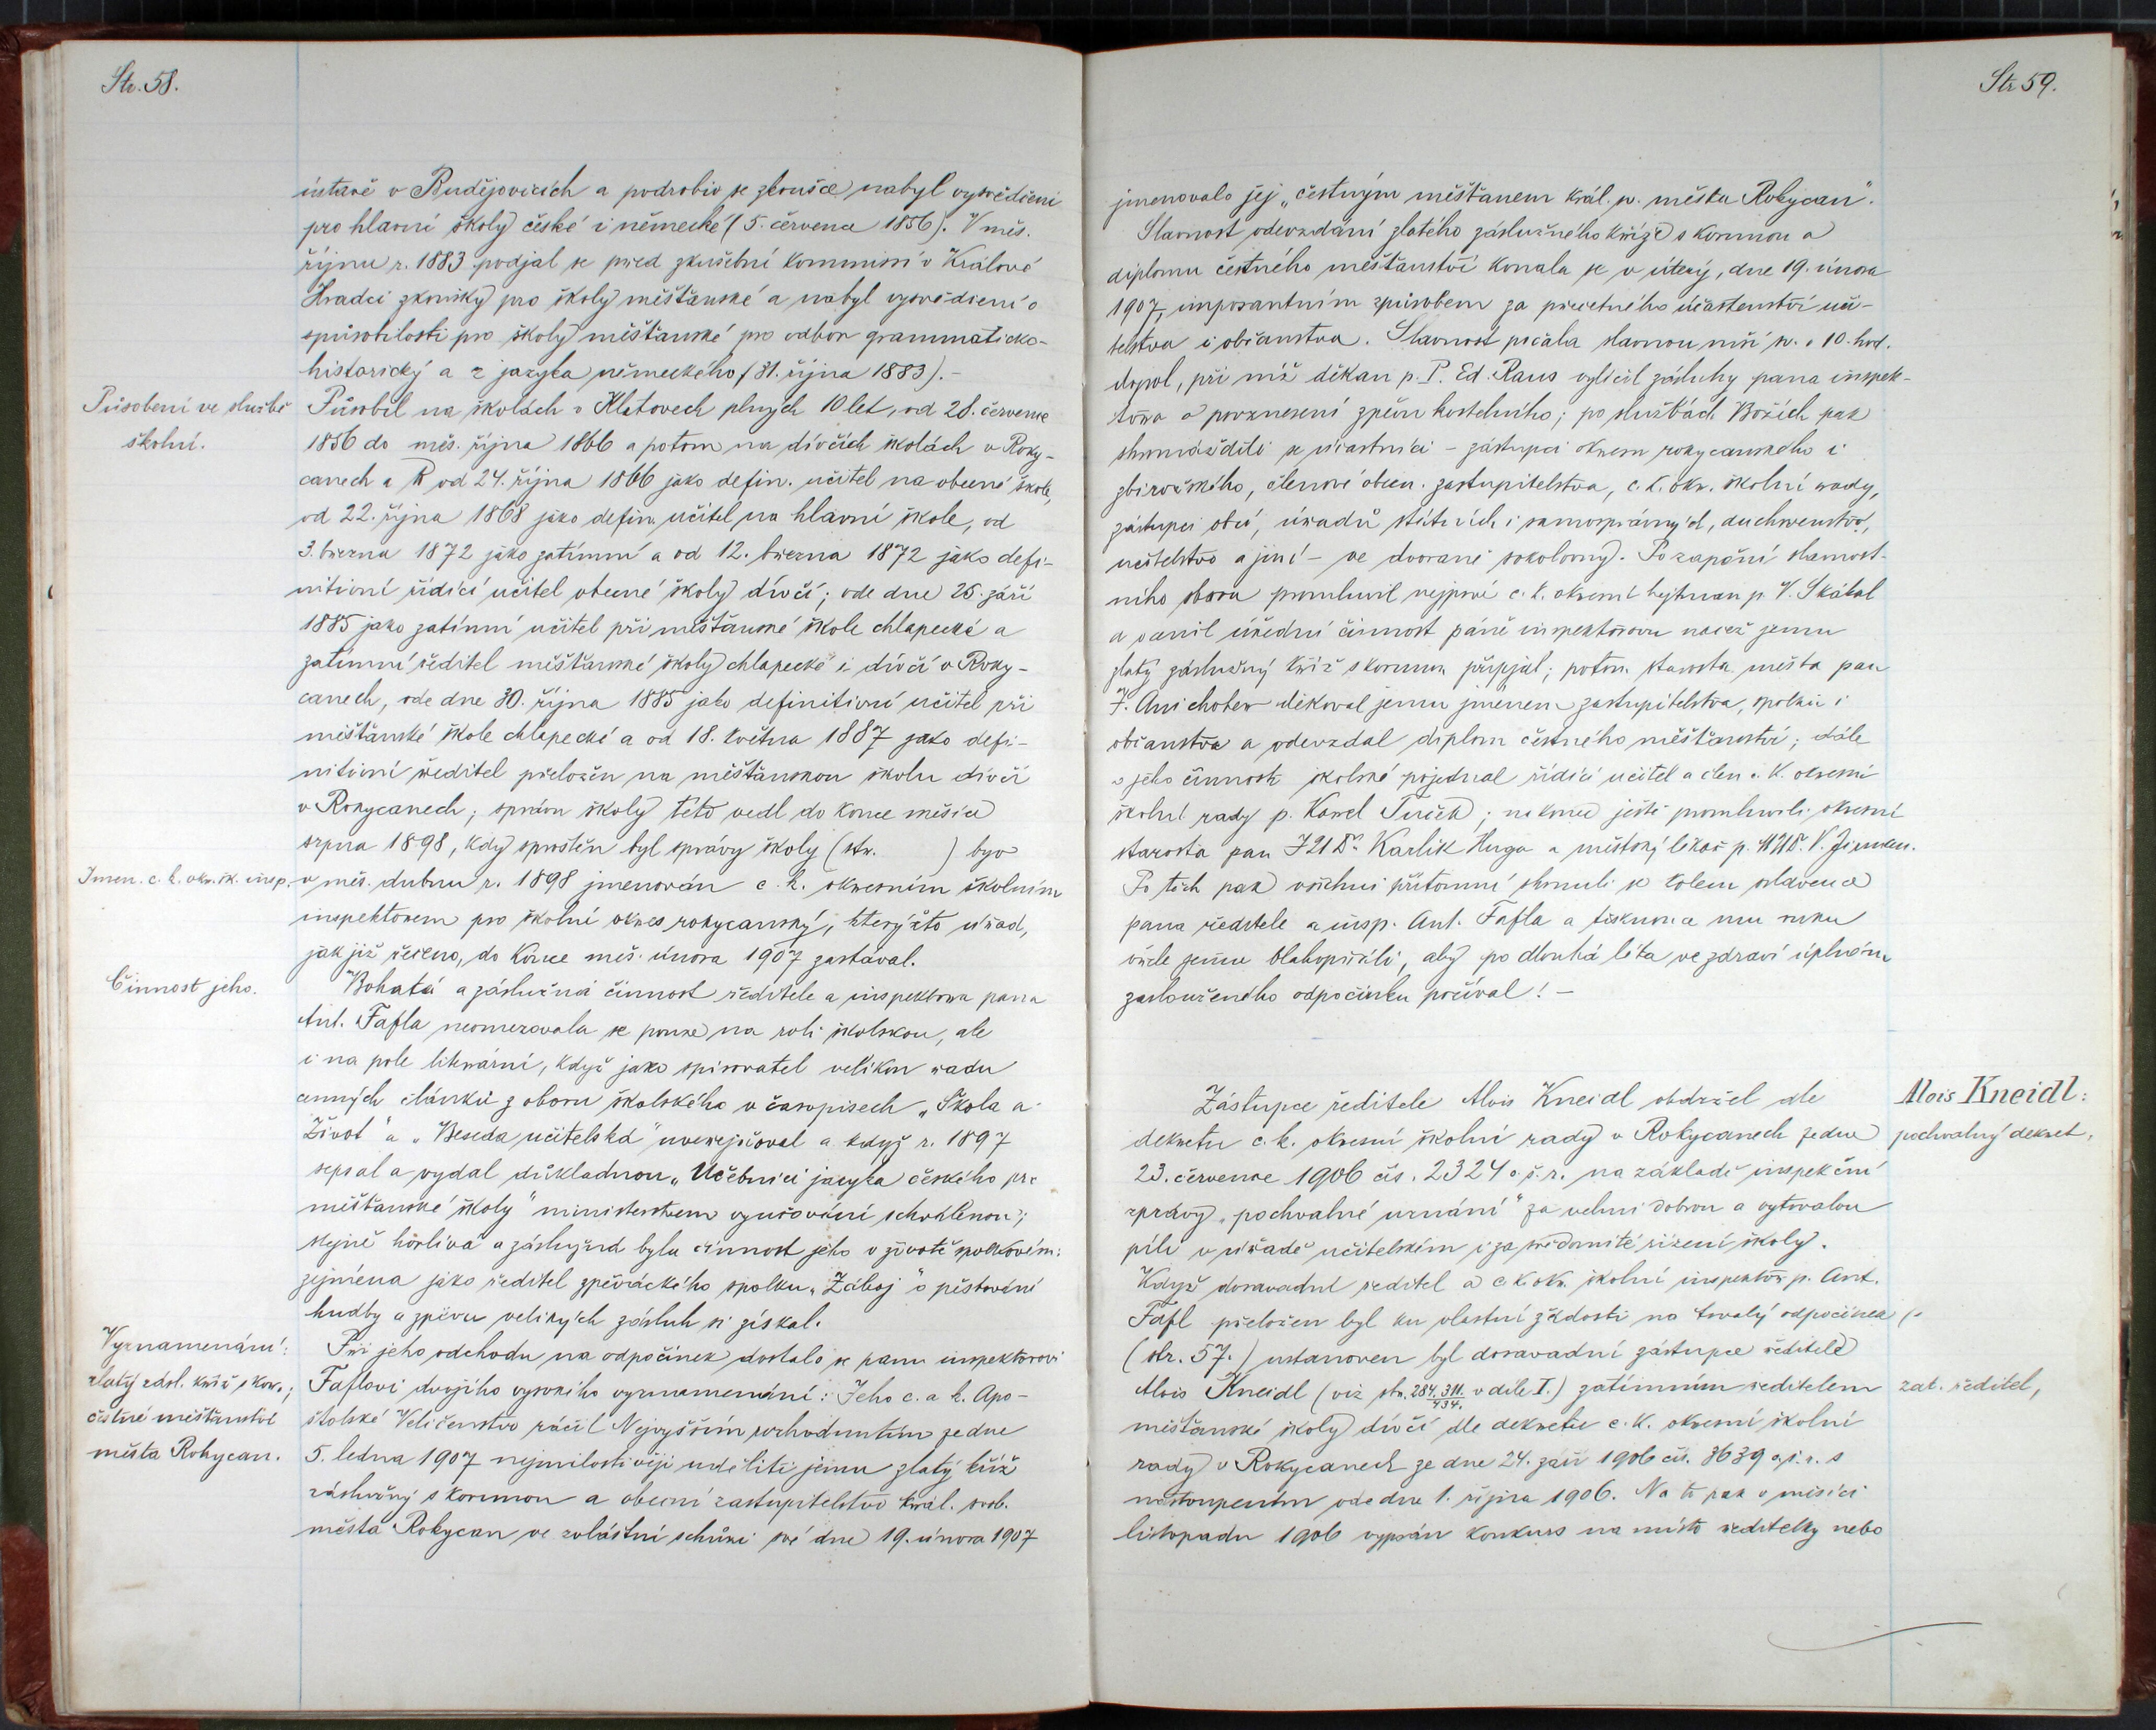 Str. 58.
ústavě v Budějovicích a podrobiv se zkoušce nabyl vysvědčení
pro hlavní školy české i německé (5. července 1856). V měs.
říjnu r. 1883 podjal se před zkušební kommissí v Králové
Hradci zkoušky pro školy měšťanské a nabyl vysvědčení o
spůsobilosti pro školy měšťanské pro odbor grammaticko-
historický a z jazyka německého (31. října 1883).-
Působení ve službě
školní.
Působil na školách v Klatovech plných 10 let, od 28. července
1856 do měs. října 1866 a potom na dívčích školách v Roky-
canech a od 24. října 1866 jako defin. učitel na obecné škole,
od 22. října 1868 jako defin. učitel na hlavní škole, od
3. března 1872 jako zatímní a od 12. března 1872 jako defi-
nitivní řídící učitel obecné školy dívčí; ode dne 26. září
1885 jako zatímní učitel při měšťanské škole chlapecké a
zatímní ředitel měšťanské školy chlapecké i dívčí v Roky-
canech, ode dne 30. října 1885 jako definitivní učitel při
měšťanské škole chlapecké a od 18. května 1887 jako defi-
nitivní ředitel přeložen na měšťanskou školu dívčí
v Rokycanech; správu školy této vedl do konce měsíce
srpna 1898, kdy sproštěn byl správy školy (str. ) byv
Jmen. c. k. okr. šk. insp.
v měs. dubnu r. 1898 jmenován c. k. okresním školním
inspektorem pro školní okres rokycanský, kterýžto úřad,
jak již řečeno, do konce měs. února 1907 zastával.
Činnost jeho.
Bohatá a záslužná činnost ředitele a inspektora pana
Ant. Fafla neomezovala se pouze na roli školskou, ale
i na pole literární, když jako spisovatel velikou řadu
cenných článků z oboru školského v časopisech „Škola a
Život" a „Beseda učitelská" uveřejňoval a když r. 1897
sepsal a vydal důkladnou „Učebnici jazyka českého pro
měšťanské školy" ministerstvem vyučování schválenou;
stejně horlivá a záslužná byla činnost jeho v životě spolkovém:
zejména jako ředitel zpěváckého spolku „Záboj" o pěstování
hudby a zpěvu velikých zásluh si získal.
Vyznamenání:
zlatý zásl. kříž s kor.;
čestné měšťanství
města Rokycan.
Při jeho odchodu na odpočinek dostalo se panu inspektorovi
Faflovi dvojího vysokého vyznamenání: Jeho c. a k. Apo-
štolské Veličenstvo ráčil Nejvyšším rozhodnutím ze dne
5. ledna 1907 nejmilostivěji uděliti jemu zlatý kříž
záslužný s korunou a obecní zastupitelstvo král. svob.
města Rokycan ve zvláštní schůzi své dne 19. února 1907
Str 59.
jmenovalo jej „čestným měšťanem král. sv. města Rokycan".
Slavnost odevzdání zlatého záslužného kříže s korunou a
diplomu čestného měšťanství konala se v úterý, dne 19. února
1907, imposantním způsobem za přečetného účastenství uči-
telstva i občanstva. Slavnost počala slavnou mší sv. o 10. hod.
dopol, při níž děkan p. P. Ed. Raus vylíčil zásluhy pana inspek-
tora o povznesení zpěvu kostelního; po službách Božích pak
shromáždili se účastníci - zástupci okresu rokycanského i
zbirožského, členové obecn. zastupitelstva, c. k. okr. školní rady,
zástupci obcí, úřadů státních i samosprávných, duchovenstvo,
učitelstvo a jiní - ve dvoraně sokolovny. Po zapění slavnost-
ního sboru promluvil nejprvé c. k. okresní hejtman p. V. Skákal
a ocenil úřední činnost páně inspektorovu načež jemu
zlatý záslužný kříž s korunou připjal; potom starosta města pan
F. děkoval jemu jménem zastupitelstva, spolků i
občanstva a odevzdal diplom čestného měšťanství; dále
o jeho činnosti školské pojednal řídící učitel a člen c. k. okresní
školní rady p. Karel Tuček; na konec ještě promluvili okresní
starosta pan JUDr. Karlík Hugo a městský lékař p. MUDr. V.
Po těch pak všichni přítomní shrnuli se kolem oslavence
pana ředitele a insp. Ant. Fafla a tisknouce mu ruku
vřele jemu blahopřáli, aby po dlouhá léta ve zdraví úplném
zaslouženého odpočinku požíval! -
Alois Kneidl:
pochvalný dekret,
Zástupce ředitele Alois Kneidl obdržel dle
dekretu c. k. okresní školní rady v Rokycanech ze dne
23. července 1906 čís. 2324 o. š. r. na základě inspekční
zprávy „pochvalné uznání" za velmi dobrou a vytrvalou
píli v úřadě učitelském i za svědomité řízení školy.
Když dosavadní ředitel a c. k. okr. školní inspektor p. Ant.
Fafl přeložen byl ku vlastní žádosti na trvalý odpočinek
(str. 57.) ustanoven byl dosavadní zástupce ředitele
Alois Kneidl (viz str. 284. 311. 434. v díle I.) zatímním ředitelem
zat. ředitel,
měšťanské školy dívčí dle dekretu c. k. okresní školní
rady v Rokycanech ze dne 24. září 1906 čís. 3639 o. š. r. s
nastoupením ode dne 1. října 1906. Na to pak v měsíci
listopadu 1906 vypsán konkurs na místo ředitelky nebo